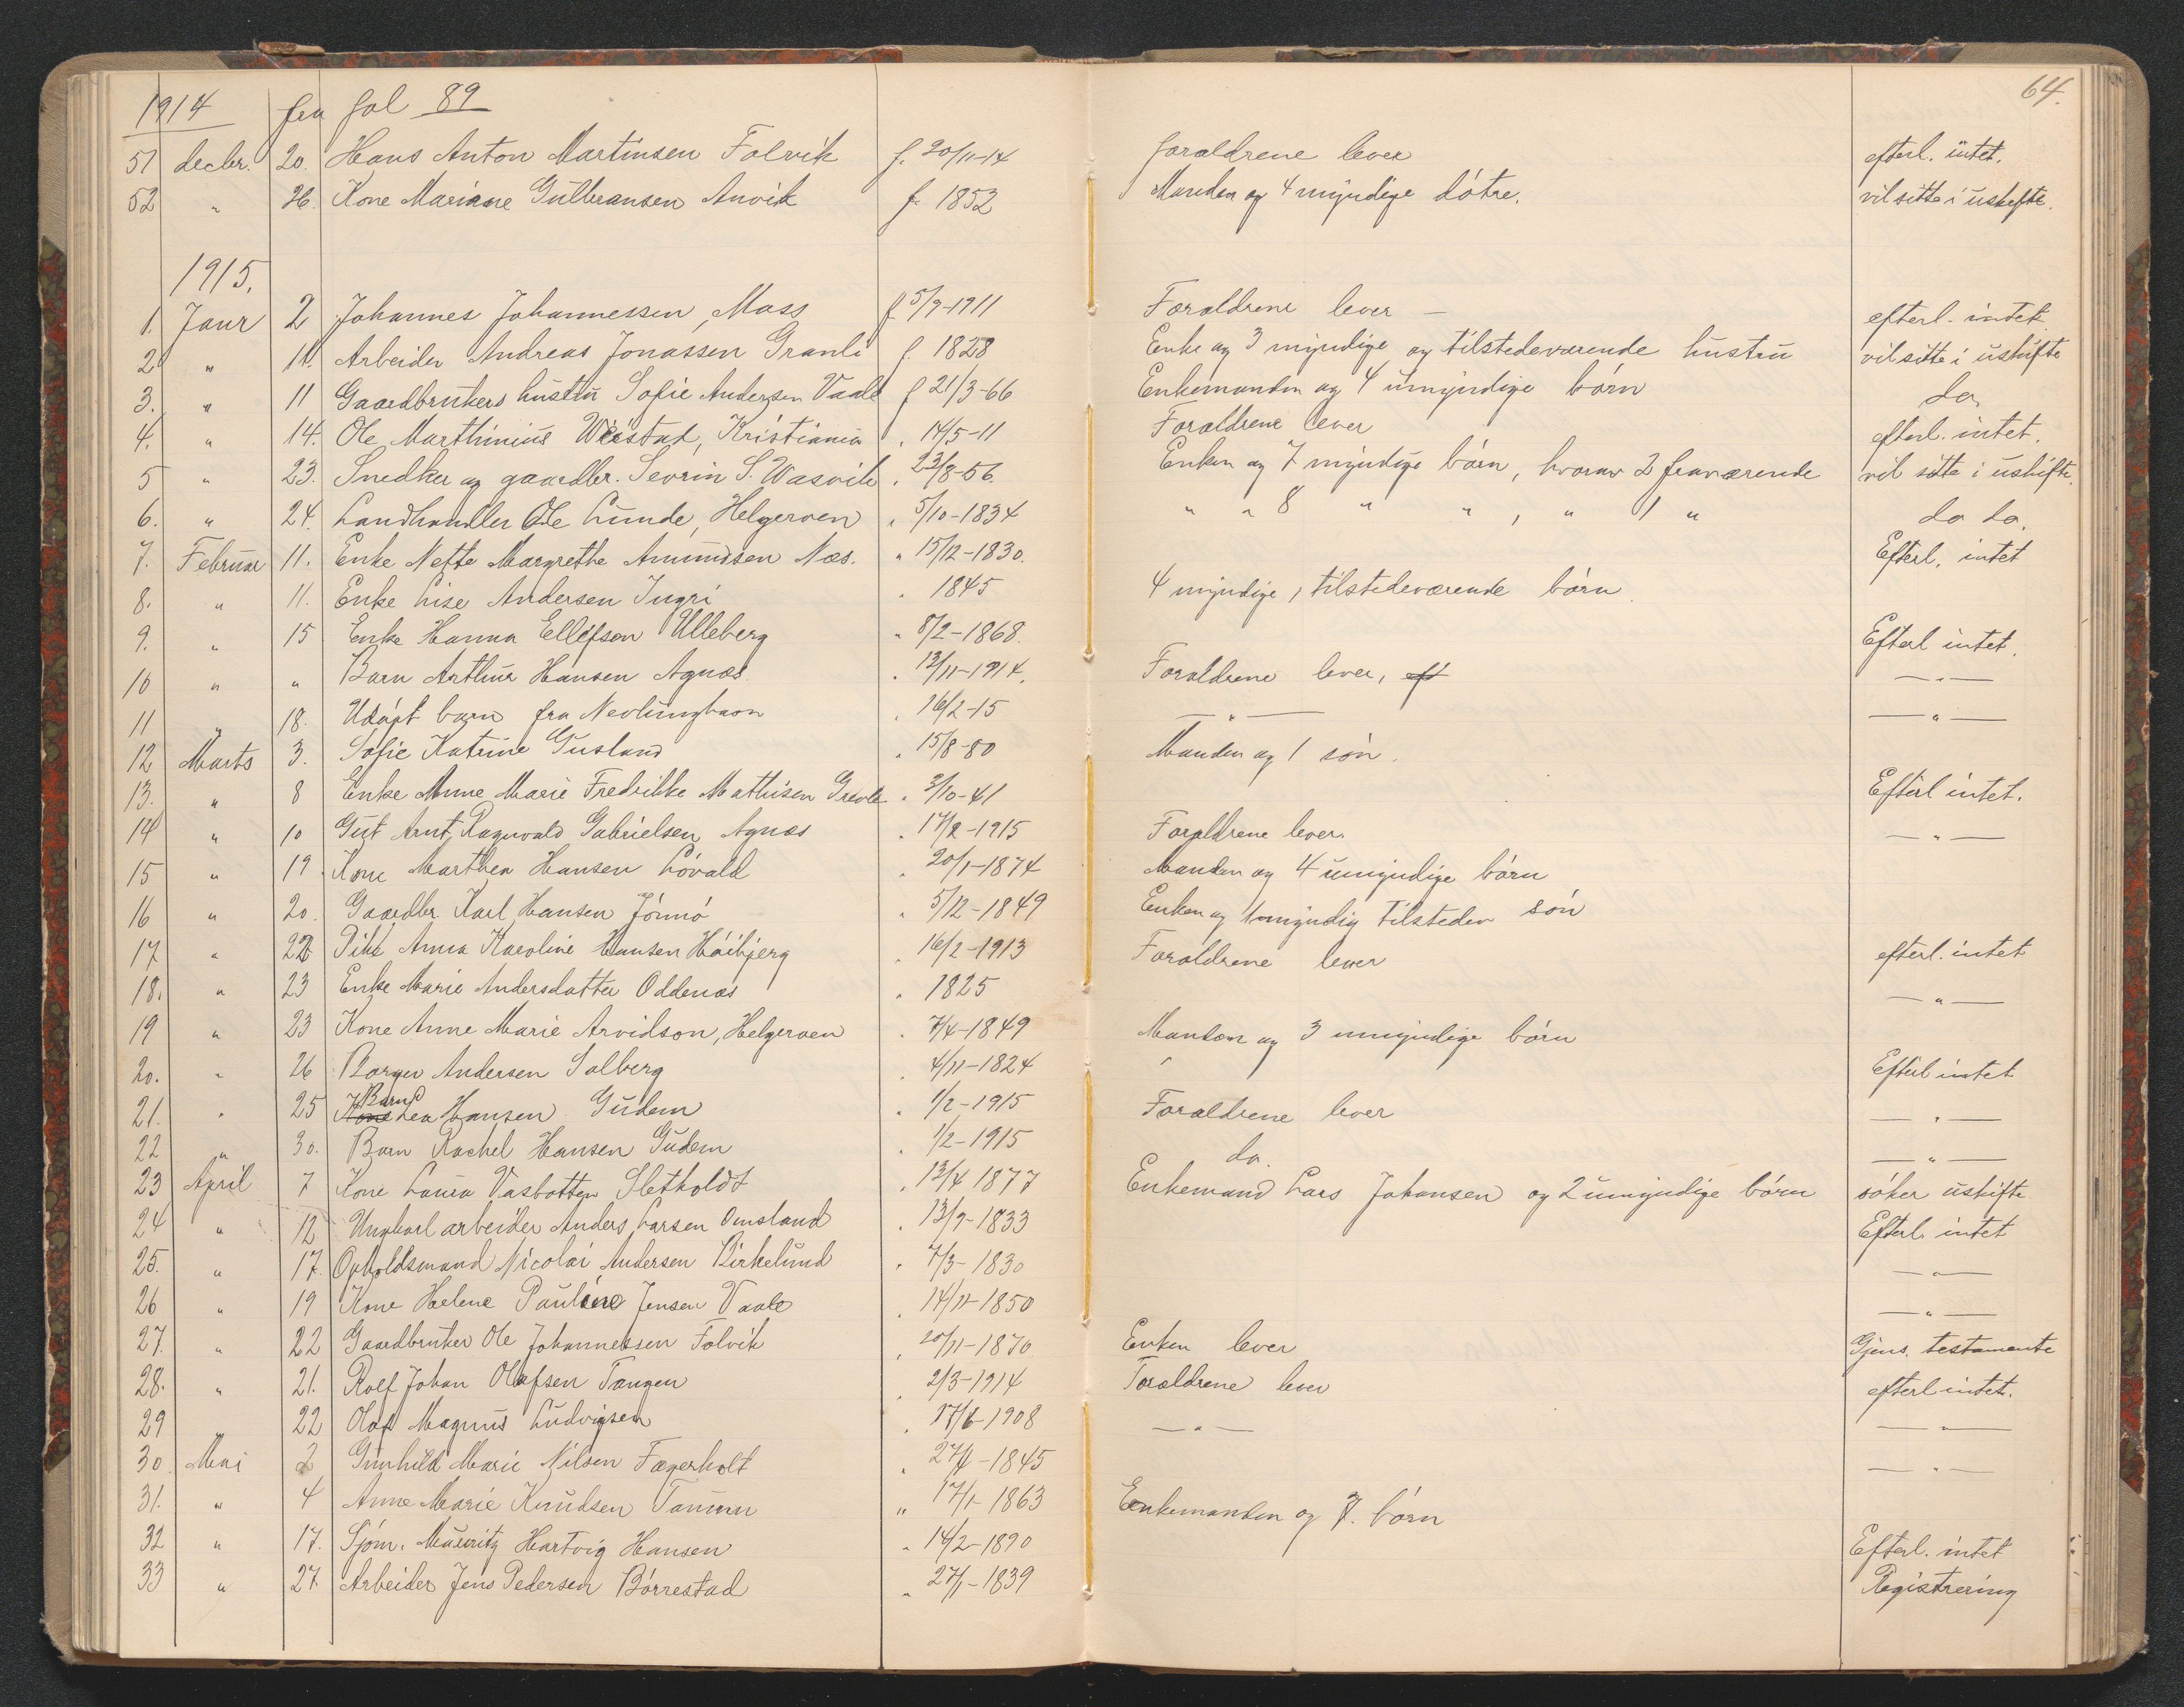 64.
1914 fra fol 89
51 decbr. 20. Hans Anton Martinsen Folvik f. 20/11-14 foraldrene lever efterl. intet.
52 " 26. Kone Mariane Gulbransen Anvik f. 1852 Manden og 4 myndige døtre. vil sitte i uskifte.
1915.
1. Janr 2 Johannes Johannessen, Moss f. 5/9-1911 Foraldrene lever — efterl. intet
2 " 11. Arbeider Andreas Jonassen Granli f. 1828 Enke og 3 myndige og tilstedeværende hustru vil sitte i uskifte
3. " 11 Gaardbrukers hustru Sofie Andersen Vaale f 21/3-66 Enkemanden og 4 umyndige børn do
4. " 14. Ole Marthinius Wiistad, Kristiania " 14/5-11 Foraldrene lever efterl. intet.
5 " 23. Snedker og gaardbr. Sevrin S. Wasvik " 23/8-56. Enken og 7 myndige børn, hvorav 2 fraværende vil sitte i uskifte.
6. " 24. Landhandler Ole Lunde, Helgeroen " 5/10-1834 " " 8 " " , " 1 " do do.
7. Februar 11. Enke Nette Margrethe Amundsen Næs. " 15/12-1830. Efterl. intet
8. " 11. Enke Lise Andersen Ingri " 1845 4 myndige, tilstedeværende børn.
9. " 15 Enke Hanna Ellefson Ulleberg " 8/2-1868. Efterl intet.
10 " " Barn Arthur Hansen Agnæs " 12/11-1914. Foraldrene lever, ef — " —
11 " 18. Udøpt barn fra Nevlunghavn " 16/2-15 — " — — " —
12 Marts 3. Sofie Katrine Gusland " 15/8-80 Manden og 1 søn.
13. " 8 Enke Anne Marie Fredrikke Mathisen Grevle " 3/10-41 Efterl intet.
14 " 10 Gut Arnt Ragnvald Gabrielsen Agnæs " 17/2-1915 Foraldrene lever. — " —
15 " 19 Kone Marthea Hansen Løvald " 20/1-1874 Manden og 4 umyndige børn
16 " 20. Gaardbr. Karl Hansen Jønnø " 5/12-1849 Enken og 1 myndig tilstedev søn
17 " 22 Pike Anna Karoline Hansen Høibjerg " 16/2-1913 Foraldrene lever efterl. intet
18. " 23 Enke Marie Andersdatter Oddenæs " 1825 — " —
19 " 23 Kone Anne Marie Arvidson, Helgeroen " 7/4-1849 Manden og 3 umyndige børn
20. " 26 Borger Andersen Solberg " 4/11-1824 " Efterl intet
21. " 25 Kone Barn Lea Hansen Gudem " 1/2-1915 Foraldrene lever — " —
22 " 30. Barn Rachel Hansen Gudem " 1/2-1915 do. — " —
23 April 7 Kone Laura Vasbotten Sletholdt " 13/4 1877 Enkemand Lars Johansen og 2 umyndige børn søker uskifte
24 " 12 Ungkarl arbeider Anders Larsen Omsland " 13/9-1833 Efterl. intet
25. " 17. Opholdsmand Nicolai Andersen Birkelund " 7/3-1830 — " —
26 " 19 Kone Helene Pauline Jensen Vaale " 14/11-1850 — " —
27. " 22 Gaardbruker Ole Johannessen Folvik " 20/11-1870 Enken lever Gjens. testamente
28. " 21. Rolf Johan Olafsen Tangen " 2/3-1914 Foraldrene lever efterl intet.
29 " 22 Olaf Magnus Ludvigsen " 17/6-1908 — " — — " —
30 Mai 2 Gunhild Marie Nilsen Fagerholt " 27/4-1845 — " —
31. " 4 Anne Marie Knudsen Tanum " 17/1-1863 Enkemanden og 7. børn
32 " 17. Sjøm. Mauritz Hartvig Hansen " 14/2-1890 Efterl. intet
33 " 27. Arbeider Jens Pedersen Børrestad " 27/1-1839 Registrering